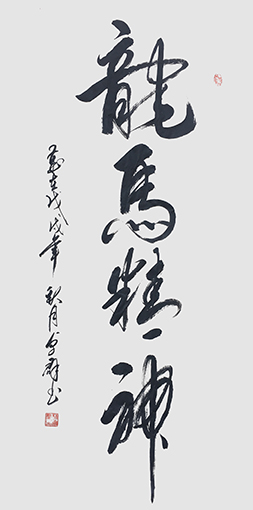 龍馬精神
歲在戊戌年 秋月